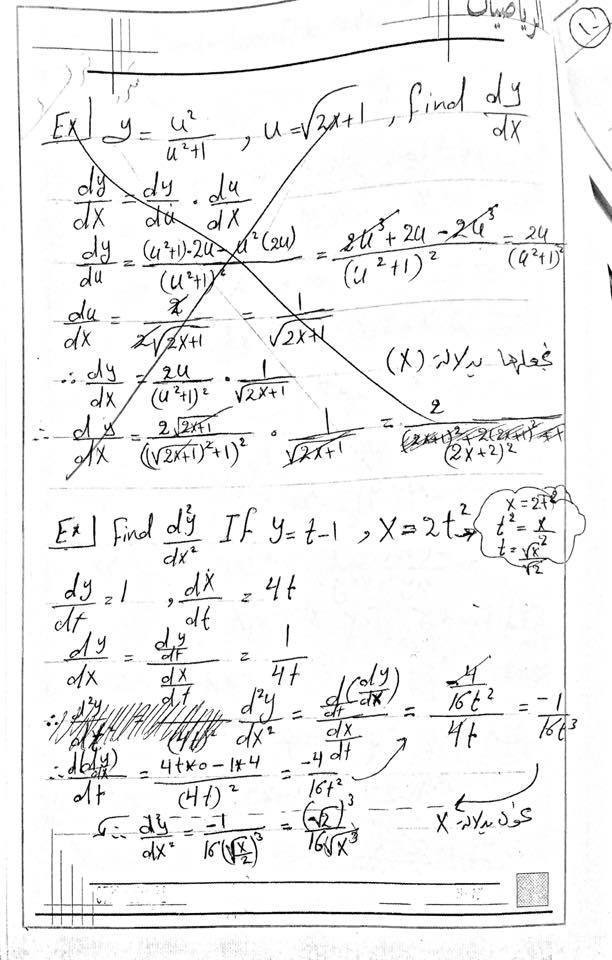 الرياضيات
Ex] y = u²/(u²+1) , u = √(2x+1) , find dy/dx
dy/dx = dy/du · du/dx
dy/du = ((u²+1)·2u − u²(2u))/(u²+1)² = (2u³+2u−2u³)/(u²+1)² = 2u/(u²+1)²
du/dx = 2/(2√(2x+1)) = 1/√(2x+1)
نجعلها بدلالة (x)
∴ dy/dx = 2u/(u²+1)² · 1/√(2x+1)
∴ dy/dx = 2√(2x+1)/((√(2x+1))²+1)² · 1/√(2x+1) = 2/(2x+2)²
Ex] Find d²y/dx² If y = t−1 , x = 2t²
x = 2t²
t² = x/2
t = √x/√2
dy/dt = 1 , dx/dt = 4t
dy/dx = (dy/dt)/(dx/dt) = 1/4t
d²y/dx² = (d(dy/dx)/dt)/(dx/dt) = (-4/16t²)/4t = -1/16t³
∴ d(dy/dx)/dt = (4t×0 − 1×4)/(4t)² = -4/16t²
∴ d²y/dx² = -1/16(√(x/2))³ = (-√2)³/16√x³
بدلالة x